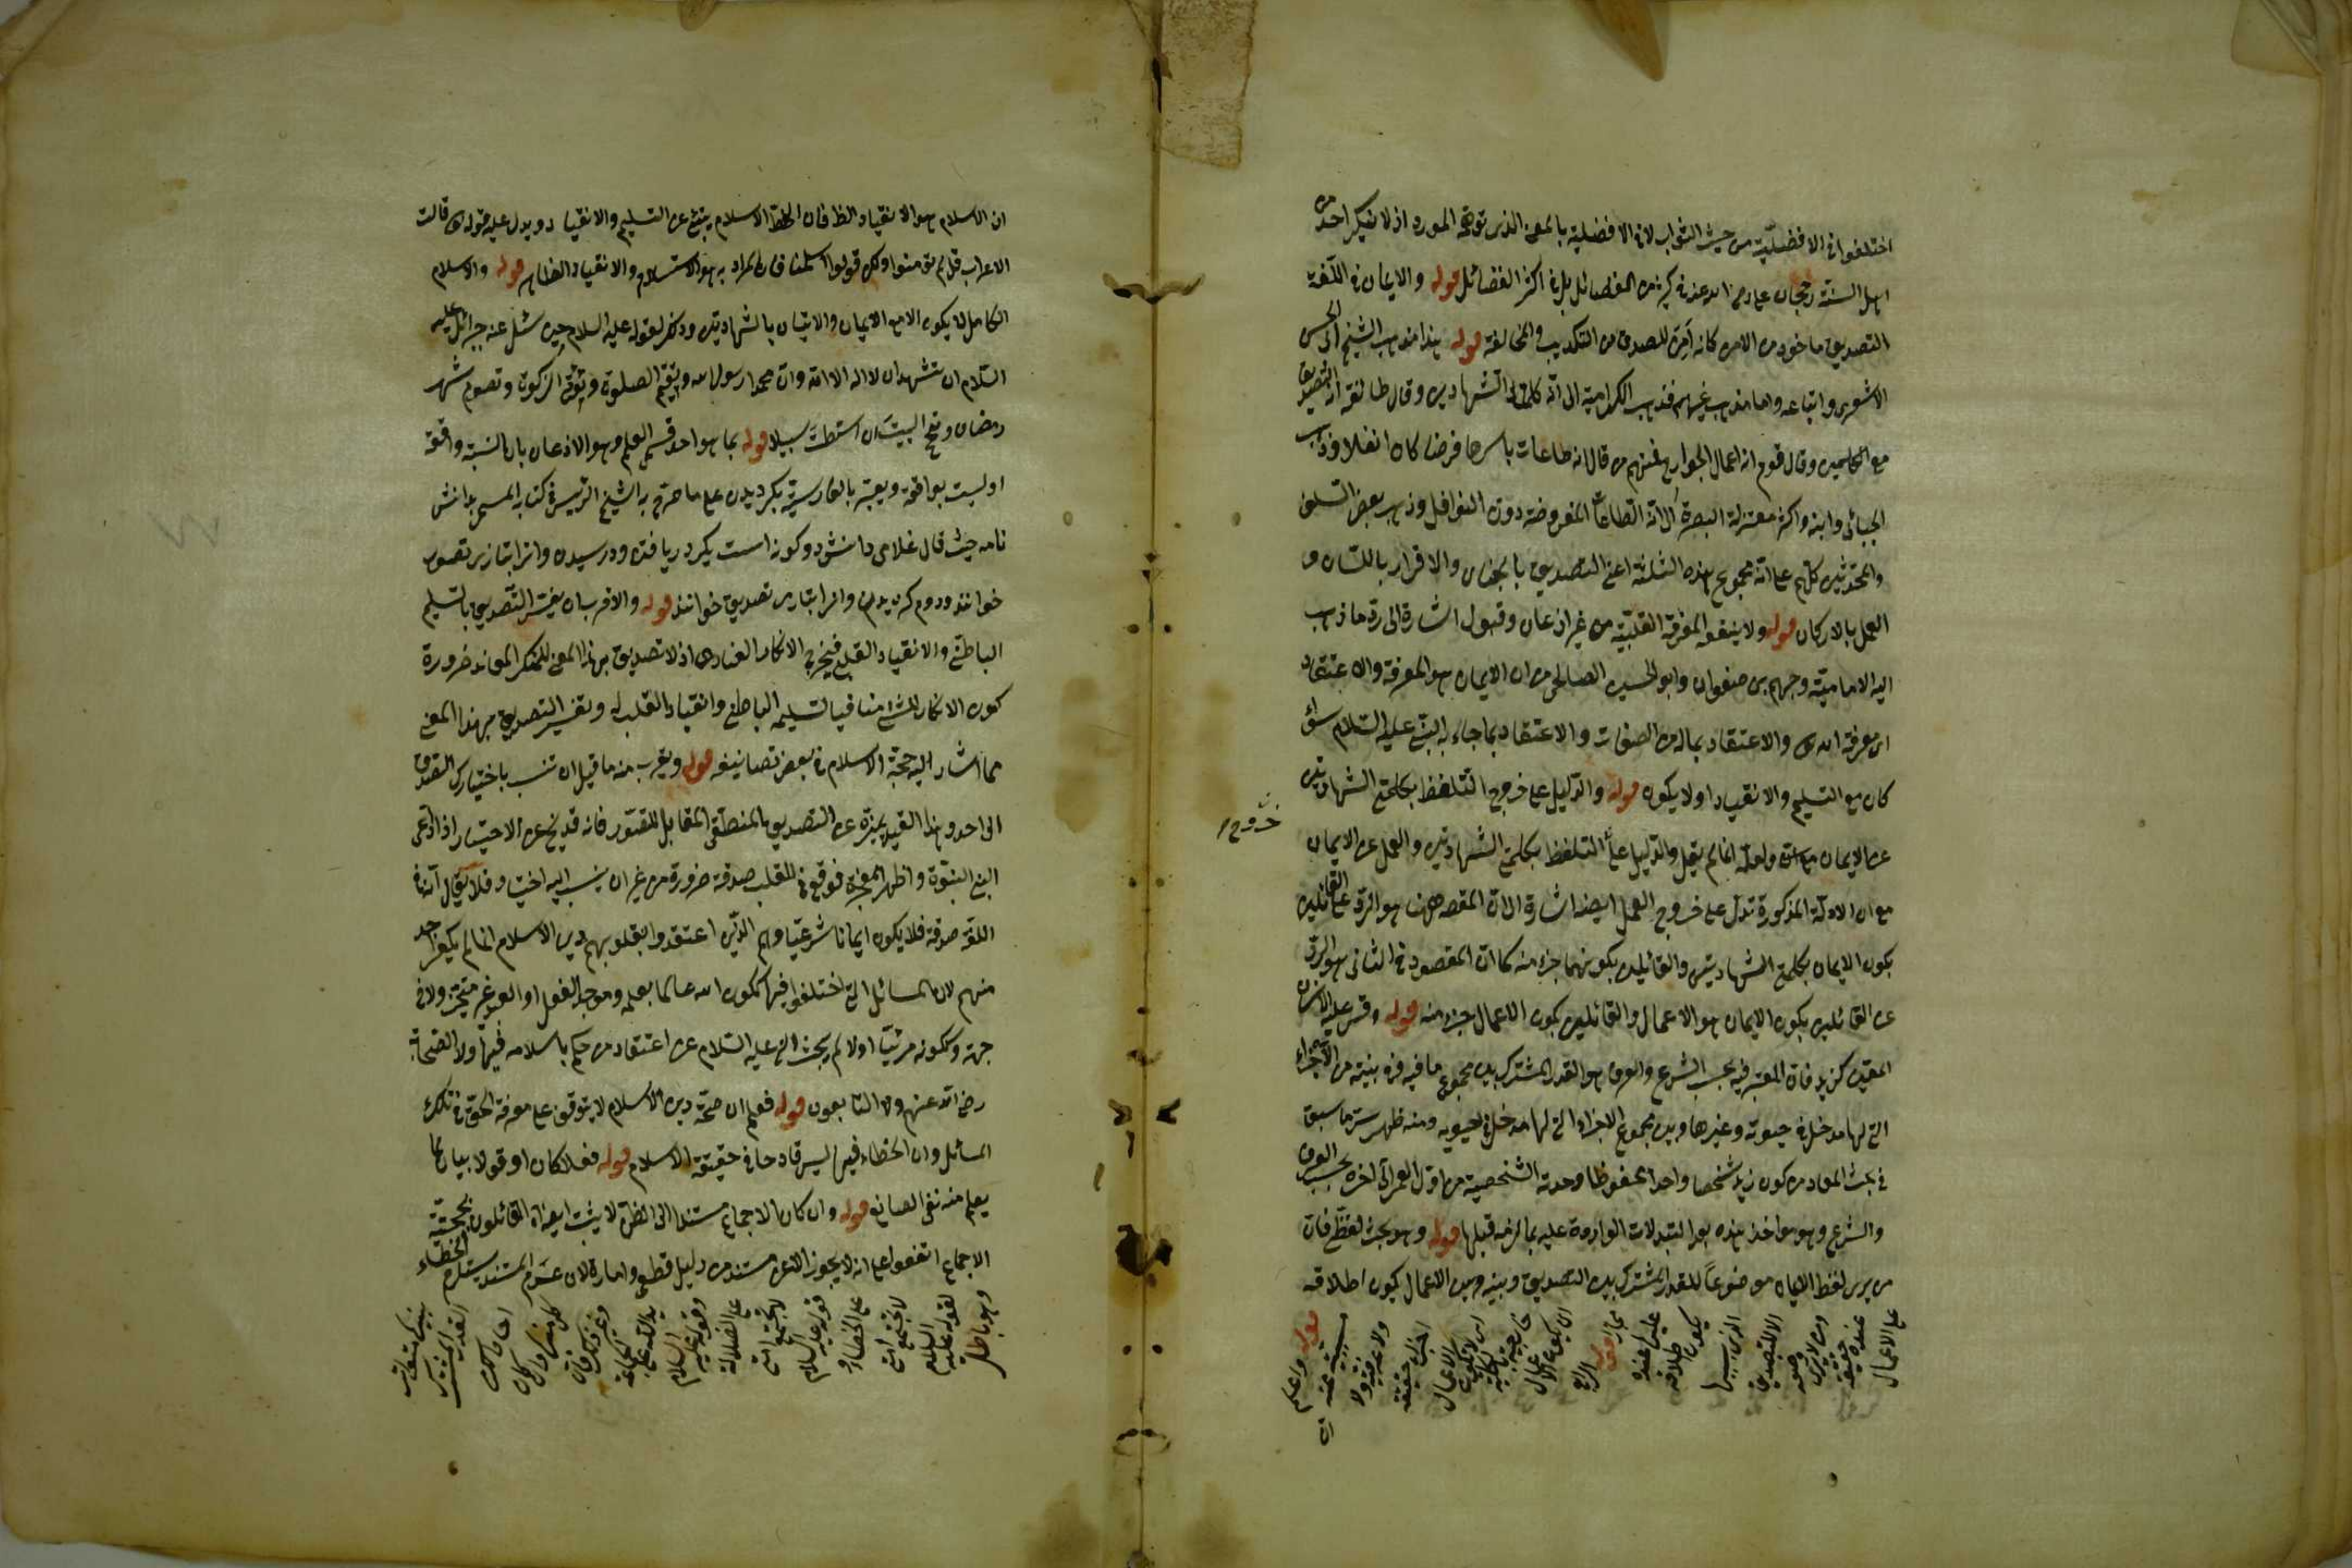 اختلفوا في الافضلية من حيث الثواب لا في الافضلية بالمعنى الذي توهمه المورد اذ لا ينكر احد من
اهل السنة رجحان علي رضي الله عنه في كثير من الفضائل بل في اكثر الفضائل قوله والايمان في اللغة
التصديق ماخوذ من الامن كانه آمن المصدق من التكذيب والمخالفة قوله هذا مذهب الشيخ ابي الحسن
الاشعري واتباعه واما مذهب غيرهم فذهب الكرامية الى انه كلمتا الشهادتين وقال طائفة انه التصديق
مع الكلمتين وقال قوم انه اعمال الجوارح فمنهم من قال انه طاعات باسرها فرضا كان او نفلا وذهب
الجبائي وابنه واكثر معتزلة البصرة الى انه الطاعات المفروضة دون النوافل وذهب بعض السلف
والمحدثين كلهم على انه مجموع هذه الثلثة اعني التصديق بالجنان والاقرار باللسان و
العمل بالاركان قوله ولا ينفعه المعرفة القلبية من غير اذعان وقبول اشارة الى رد ما ذهب
اليه الامامية وجهم بن صفوان وابو الحسين الصالحي من ان الايمان هو المعرفة والاعتقاد
اي معرفة الله تعالى والاعتقاد بماله من الصفات والاعتقاد بما جاء به النبي عليه السلام سواء
كان مع التسليم والانقياد او لا يكون قوله والدليل على خروج التلفظ بكلمتي الشهادتين
خروج
عن الايمان ولعله انما لم يقل والدليل على التلفظ بكلمتي الشهادتين والعمل عن الايمان
مع ان الادلة المذكورة تدل على خروج العمل ايضا اشارة الى ان المقصد ههنا هو الرد على القائلين
بكون الايمان بكلمتي الشهادتين والقائلين بكونهما جزء منه كما ان المقصود في الثاني هو الرد
عن القائلين بكون الايمان هو الاعمال والقائلين بكون الاعمال جزء منه قوله وقس عليه الانسان
المعين كزيد فان المعتبر فيه بحسب الشرع والعرف هو القدر المشترك بين مجموع ما فيه في بنيته من الاجزاء
التي لها مدخل في حيوته وغيرها وبين مجموع الاجزاء التي لها مدخل في حيوته ومنه ظهر سر ما سبق
في بحث المعاد من كون زيد شخصا واحدا محفوظا وحدته الشخصية من اول العمر الى اخره بحسب العرف
والشرع وهو مواخذ بهذه بعد التبدلات الواردة عليه بما لزمه قبلها قوله وهو بحث لفظي فان
من يرى لفظ الايمان موضوعا للقدر المشترك بين التصديق وبينه وبين الاعمال يكون اطلاقه
على الاعمال
عنده حقيقة
ومن لا يرى
وضعه
الا للتصديق
الذي سببها
يكون اطلاقه
عليها عنده
مجازا قوله الرابع
ان يكون الاعمال
خارجة بالكلية
اي لا يكون الاعمال
اجزاء حقيقة
ولا عرفية ولا
مسببة عنه
قوله واعلم
ان
ان الاسلام هو الانقياد الظ فان لفظ الاسلام ينبئ عن التسليم والانقياد ويدل عليه قوله تعالى قالت
الاعراب قل لم تؤمنوا ولكن قولوا اسلمنا فان المراد به هو الاستسلام والانقياد الظاهر قوله والاسلام
الكامل لا يكون الا مع الايمان والاتيان بالشهادتين وذكر لقوله عليه السلام حين سئل عنه جبرائيل عليه
السلام ان تشهد ان لا اله الا الله وان محمدا رسول الله وتقيم الصلوة وتؤتي الزكوة وتصوم شهر
رمضان وتحج البيت ان استطعت سبيلا قوله بما هو احد قسمي العلم وهو الاذعان بان النسبة واقعة
او ليست بواقعة ويعبر بالفارسية بكرديدن على ما صرح به الشيخ الرئيس في كتابه المسمى بدانش
نامه حيث قال غلامى دانش دو كونه است يكى دريافتن ودر رسيدن وانرا بتازى تصور
خوانند ودوم كرويدن وانرا بتازى تصديق خوانند قوله والاقرب ان يفسر التصديق بالتسليم
الباطني والانقياد القلبي فيخرج الانكار العنادي اذ لا تصديق بهذا المعنى للمنكر المعاند ضرورة
كون الانكار للشئ منافيا لتسليمه الباطني وانقياد القلب له وتفسير التصديق بهذا المعنى
مما اشار اليه حجة الاسلام في بعض تصانيفه قوله ويقرب منه ما قيل ان تنسب باختيارك الصدق
الى احد وهذا القيد يميزه عن التصديق المنطقي المقابل للتصور فانه قد يخلو عن الاختيار اذا ادعى
النبي النبوة واظهر المعجزة فوقع في القلب صدقه ضرورة من غير ان ينسب اليه اختيار فلا يقال في
اللغة صدقه فلا يكون ايمانا شرعيا وهم الذين اعتقدوا بقلوبهم دين الاسلام انما لم يكفر احد
منهم لان المسائل التي اختلفوا فيها ككون الله عالما بعلمه وموجد الفعل او العبد غير متحيز ولا في
جهة وككونه مرئيا او لا لم يبحث النبي عليه السلام عن اعتقاد من حكم باسلامه فيها ولا الصحابة
رضي الله عنهم ولا التابعون قوله فعلم ان صحة دين الاسلام لا يتوقف على معرفة الحق في تلك
المسائل وان الخطاء فيها ليس قادحا في حقيقة الاسلام قوله فعلا كان او قولا بيان لما
يعلم منه نفي الصانع قوله وان كان الاجماع مستندا الى الظن لا يثبت ايضا القائلون بحجية
الاجماع اتفقوا على انه لا يجوز الا عن مستند من دليل قطعي وامارة لان عدم المستند يستلزم الخطاء
وهو باطل
لقوله عليه السلام
لا تجتمع امتي
على الخطاء و
قوله عليه السلام
لا تجتمع امتي
على الضلالة
وقوله عليه السلام
يد الله على الجماعة
وغير ذلك فان
كل منها وان كان
احادا لكن
القدر المشترك
بينها متواتر